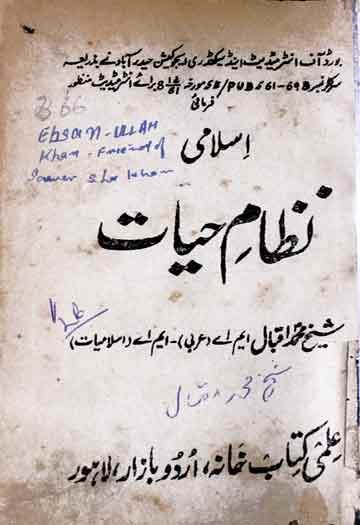 بورڈ آف انٹرمیڈیٹ اینڈ سیکنڈری ایجوکیشن حیدرآباد نے بذریعہ
سرکلر نمبر SE/PUB 561-698 مورخہ برائے انٹرمیڈیٹ منظور
فرمائی
366
Ehsan-ULLAH
Khan - Friend of
Khan
اِسلامی
نظامِ حیات
شیخ محمد اقبال ایم اے (عربی) - ایم اے (اسلامیات)
شیخ محمد اقبال
عِلمی کتاب خانہ، اُردو بازار، لاہور